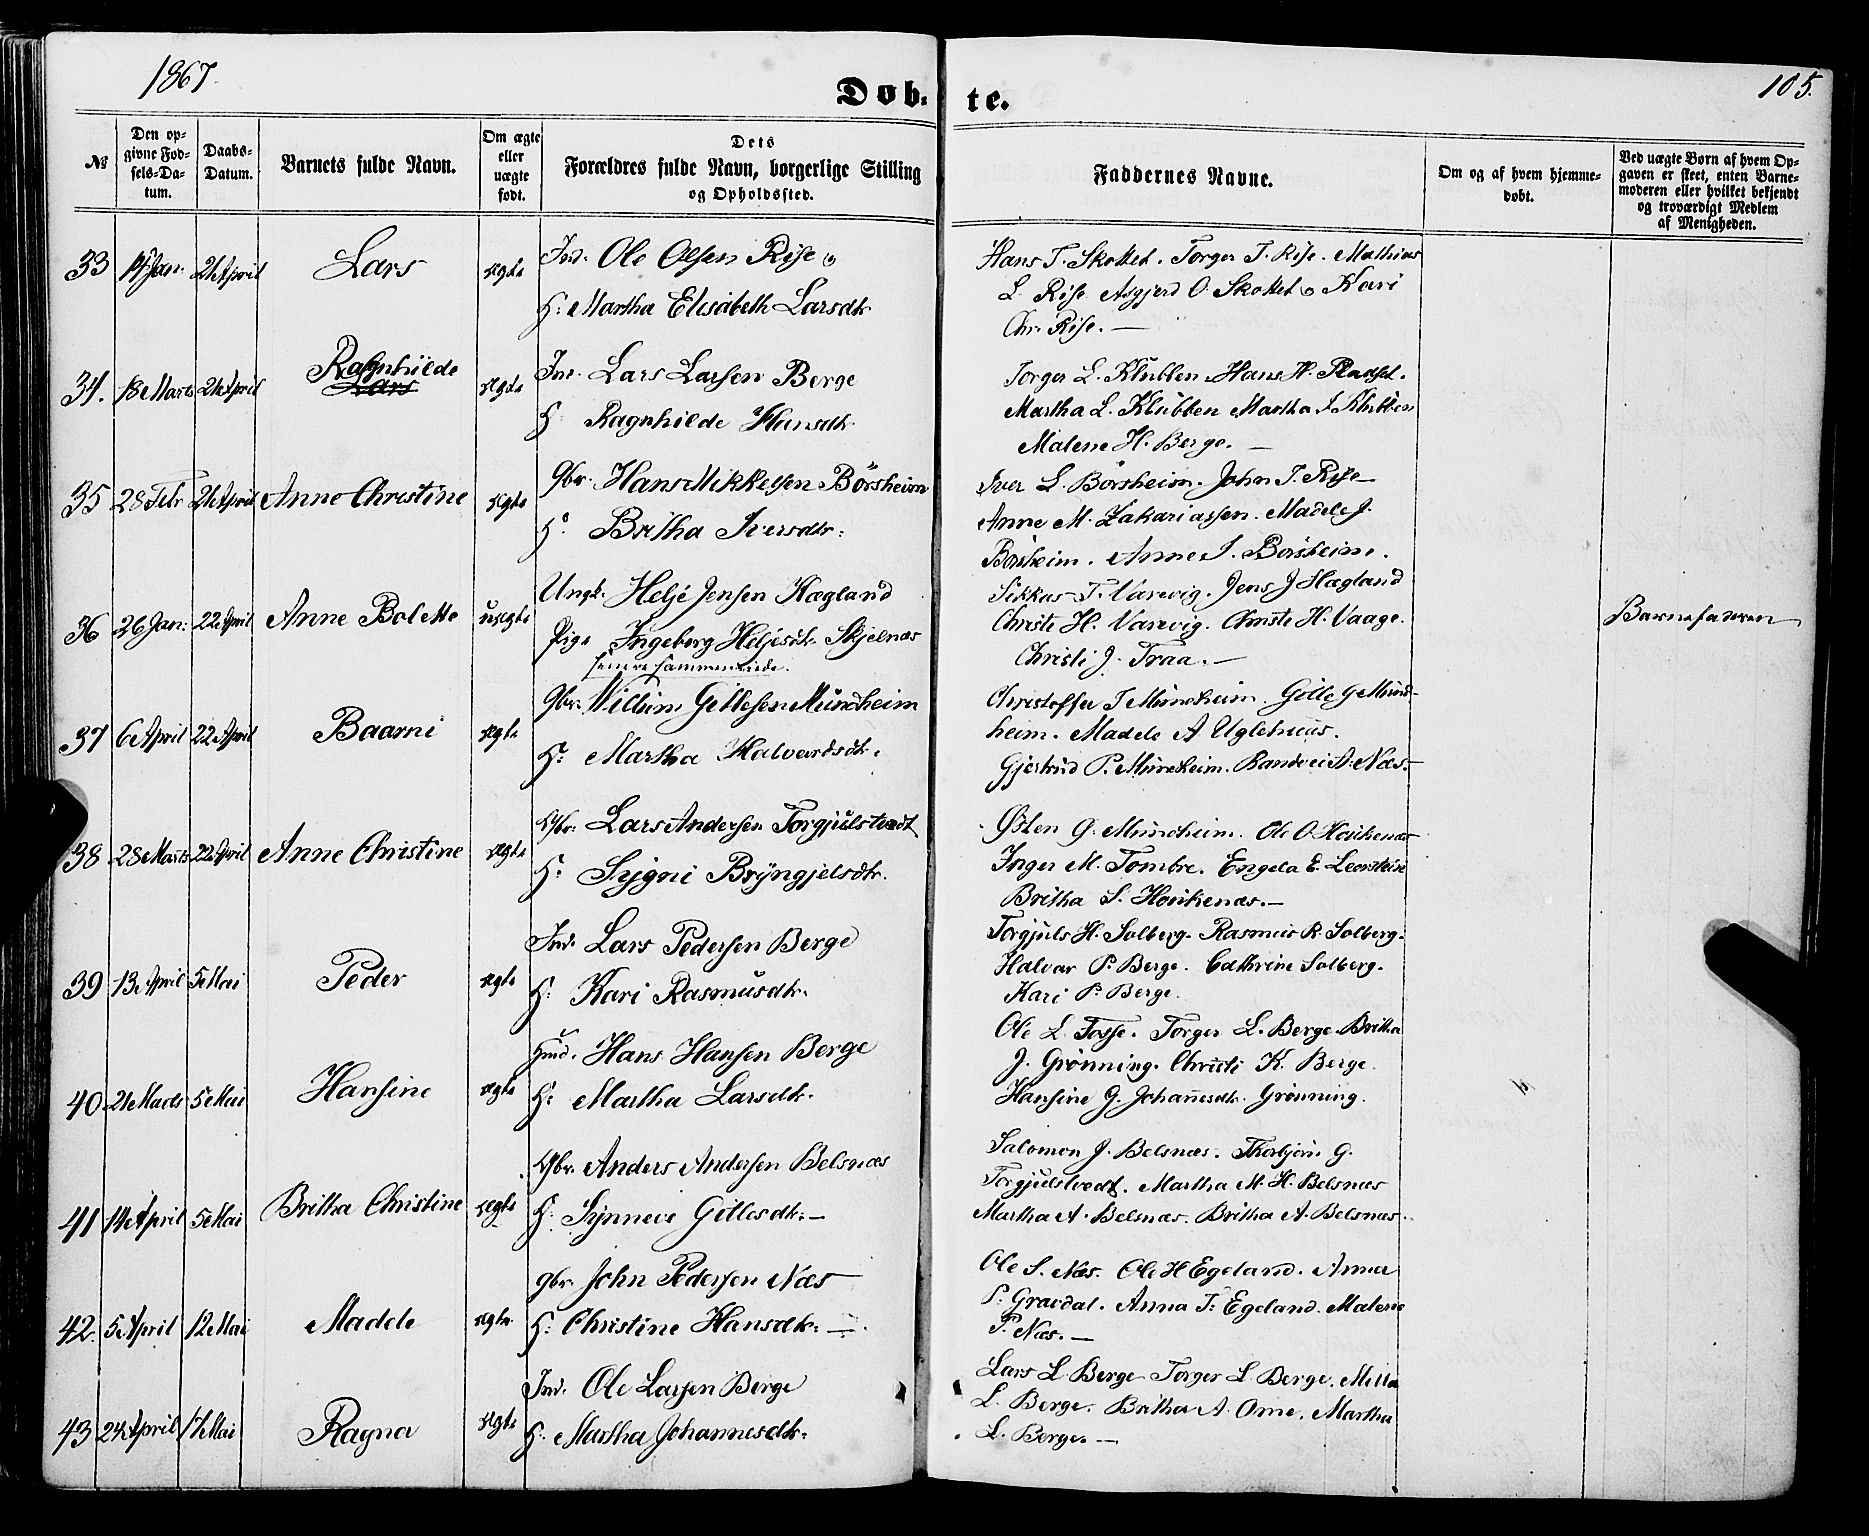 1867.
Døb-
te.
105.
№
Den op-
givne Fød-
sels-Da-
tum.
Daabs-
Datum.
Barnets fulde Navn.
Om ægte
eller
uægte
født.
Dets
Forældres fulde Navn, borgerlige Stilling
og Opholdssted.
Faddernes Navne.
Om og af hvem hjemme-
døbt.
Ved uægte Børn af hvem Op-
gaven er skeet, enten Barne-
moderen eller hvilket bekjendt
og troværdigt Medlem
af Menigheden.
33 14 Jan. 21 April Lars ægte
Ind. Ole Olsen Rise o
H: Martha Elisabeth Larsdtr
Hans T. Skottet. Torger T. Rise. Mathias
L. Rise Asgjerd O. Skottet o Kari
Chr. Rise. —
34. 18 Marts 21 April Ragnhilde ægte
Lars
Ind. Lars Larsen Berge
H: Ragnhilde Hansdtr.
Torger L. Klubben. Hans H. Pladset.
Martha L. Klubben Martha J. Klubben
Malene H. Berge. —
35 28 Febr 21 April Anne Christine ægte
Gbr. Hans Mikkelsen Börsheim
H: Britha Iversdtr.
Iver L. Börsheim. John T. Rise
Anne M. Zakariassen. Madele J.
Börsheim. Anne I. Börsheim.
36 26 Jan: 22 April Anne Bolette uægte
Ungk. Helje Jensen Hægland
Pige Ingeborg Heljesdtr. Skjelnæs
senere sammenviede.
Sikkus T. Varevig. Jens J Hægland
Christi H. Varevig. Christe H. Vaage.
Christi J. Traa. —
Barnefaderen
37 6 April 22 April Baarni ægte
Gbr. Willum Gitlesen Mundheim
H: Martha Halvardsdtr.
Christoffer T Mundheim. Gitle G Mund-
heim. Madele A Uglehuus.
Gjertrud P. Mundheim. Randvei A. Næs.
38 28 Marts 22 April Anne Christine ægte
Gbr. Lars Andersen Torgjulstvedt
H: Sygni Bryngjelsdtr.
Østen G. Mundheim. Ole O. Houkenæs
Inger M. Tombre. Engela E.
Britha S. Houkenæs. —
39 13 April 5 Mai Peder ægte
Ind. Lars Pedersen Berge
H: Kari Rasmusdtr.
Torgjuls H. Solberg. Rasmus R. Solberg.
Halvar P. Berge. Cathrine Solberg.
Kari P. Berge.
40 21 Marts 5 Mai Hansine ægte
Huusd. Hans Hansen Berge
H: Martha Larsdtr.
Ole L. Tosse. Torger L. Berge. Britha
J. Grønning. Christi K. Berge.
Hansine G. Johannesdtr. Grønning.
41 14 April 5 Mai Britha Christine ægte
Gbr. Anders Andersen Belsnæs
H: Synneve Gitlesdtr. —
Salomon J. Belsnæs. Thorbjørn G.
Torgjulstvedt. Martha M. H. Belsnæs
Martha A. Belsnæs. Britha A. Belsnæs.
42. 5 April 12 Mai Madele ægte
Gbr. John Pedersen Næs
H: Christine Hansdtr. —
Ole S. Næs. Ole H Egeland. Anna
P. Gravdal. Anna T. Egeland. Malene
P. Næs. —
43 24 April 17 Mai Ragna ægte
Ind. Ole Larsen Berge
H. Martha Johannesdtr.
Lars L Berge Torger L Berge. Metta
L. Berge. Britha A. Ome. Martha
L. Berge. —